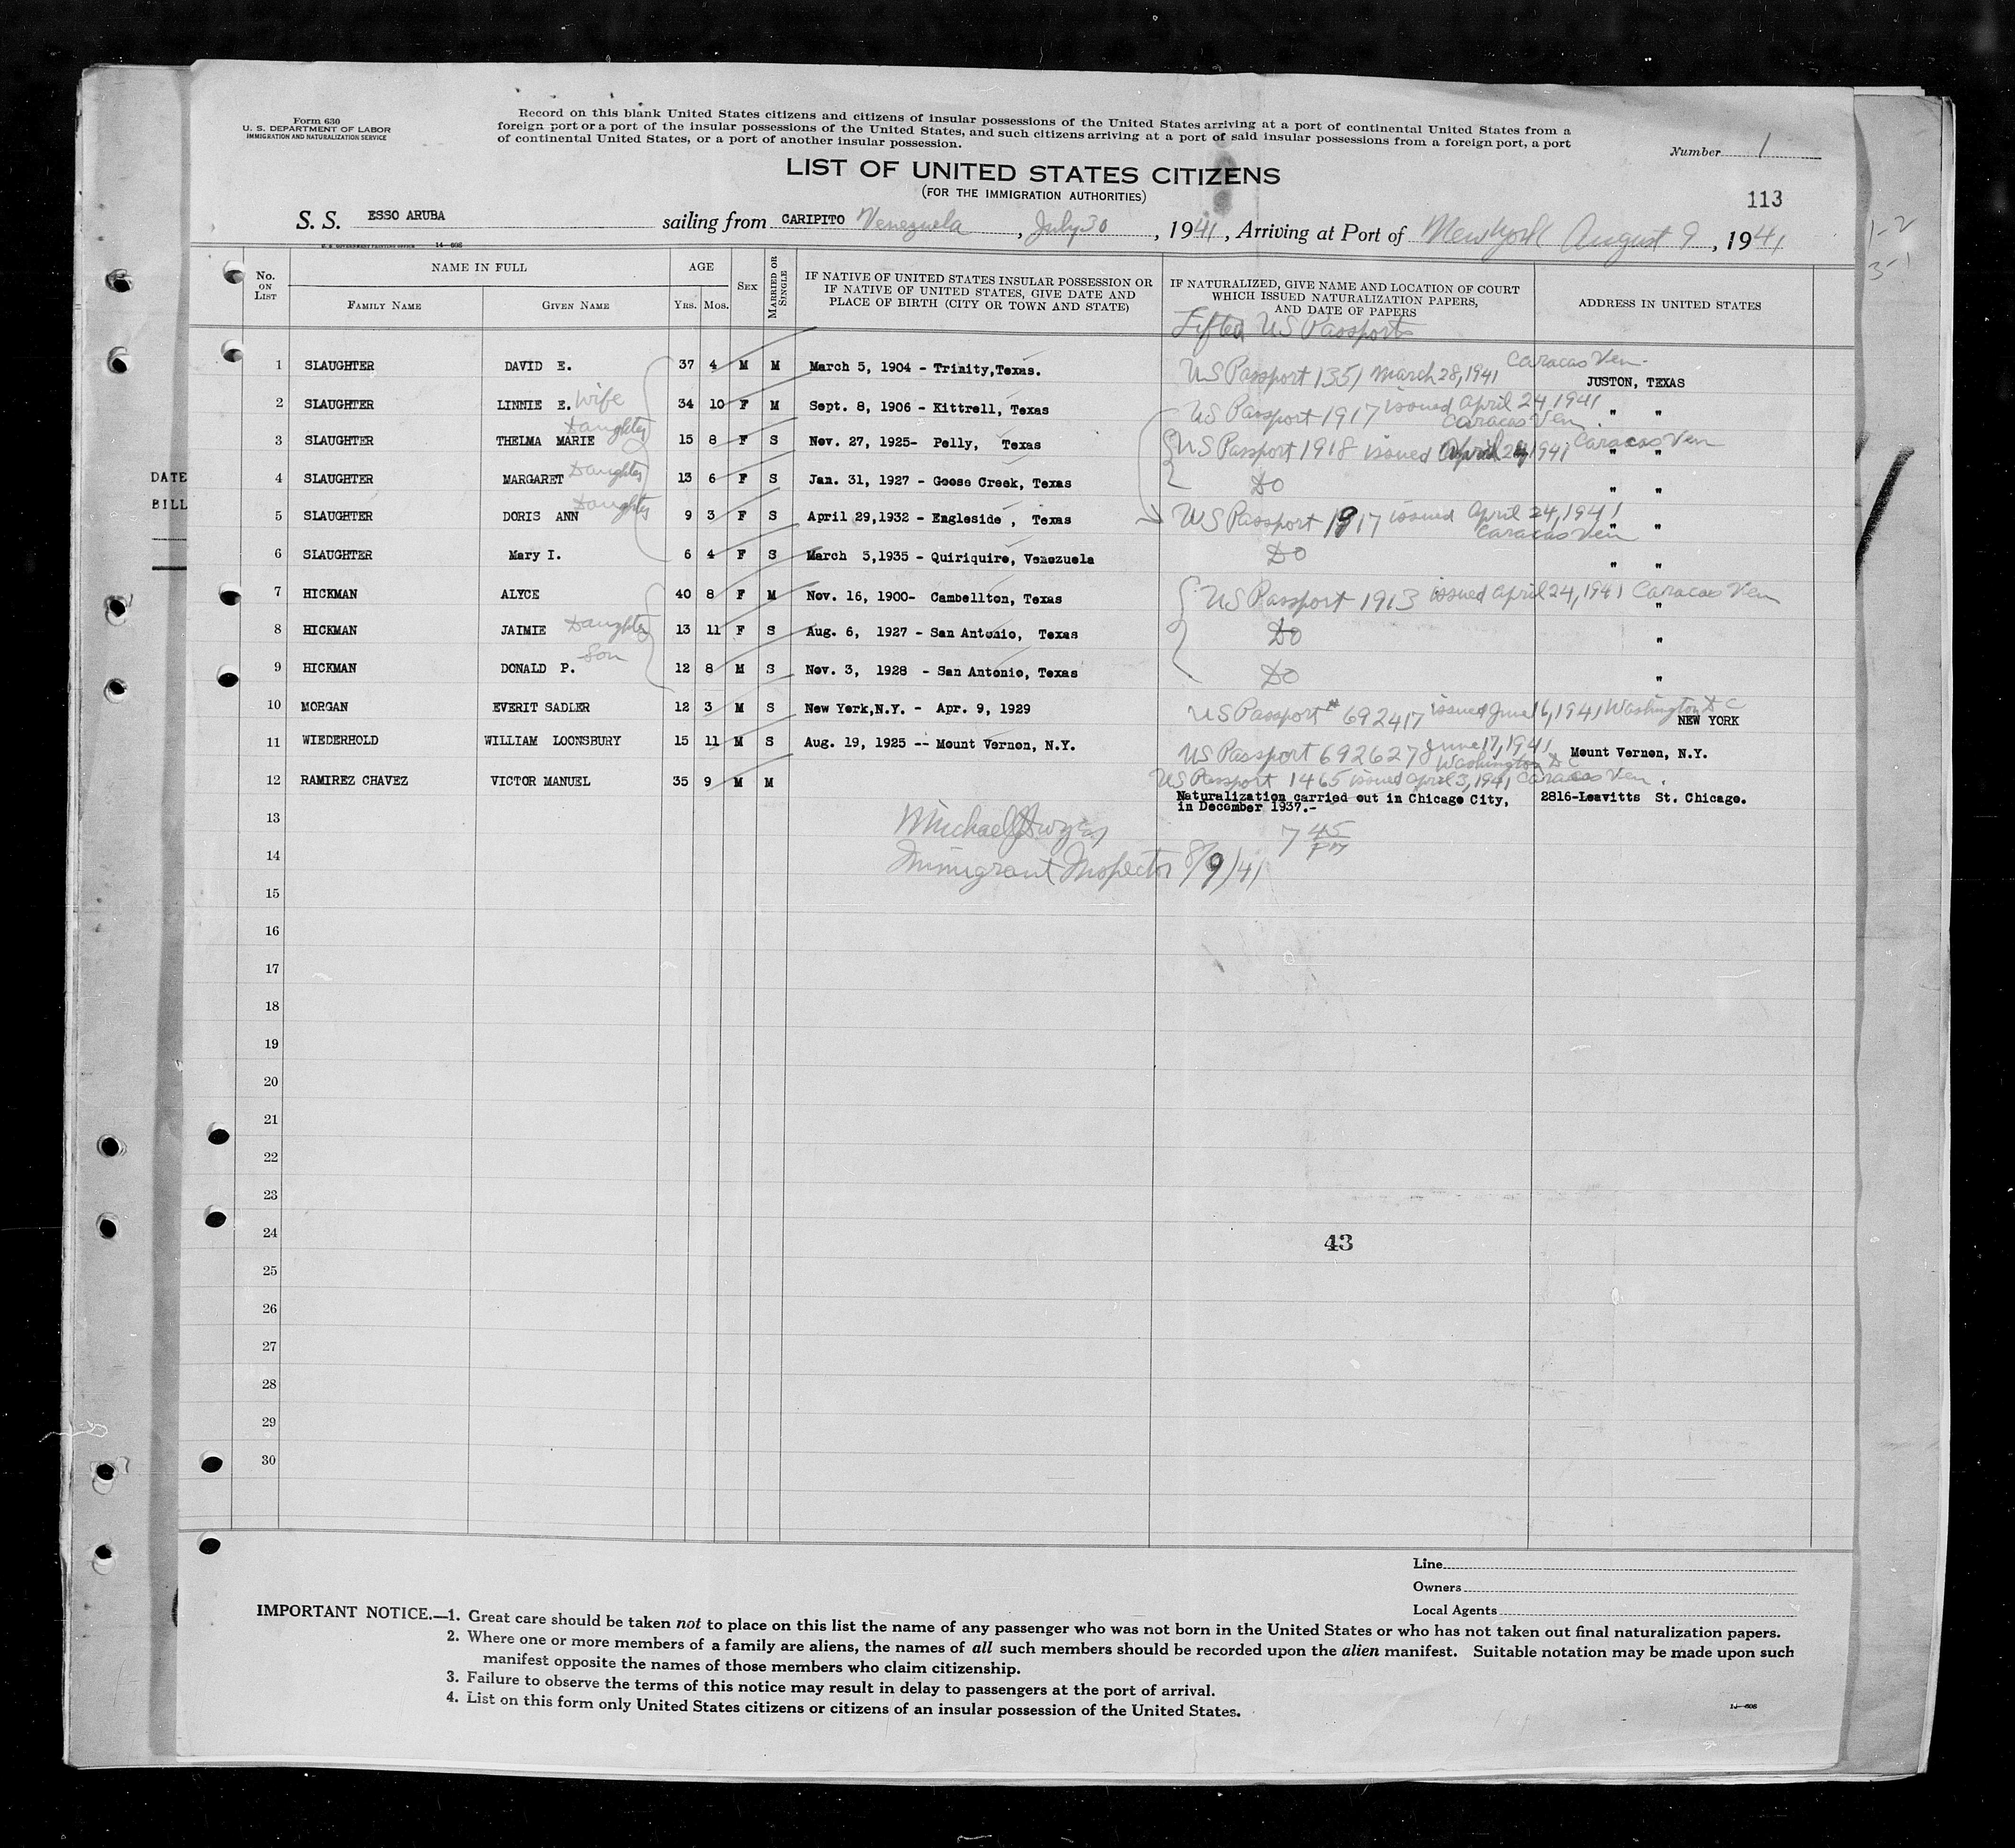 Form 630
U. S. DEPARTMENT OF LABOR
IMMIGRATION AND NATURALIZATION SERVICE
Record on this blank United States citizens and citizens of insular possessions of the United States arriving at a port of continental United States from a
foreign port or a port of the insular possessions of the United States, and such citizens arriving at a port of said insular possessions from a foreign port, a port
of continental United States, or a port of another insular possession.
Number 1
LIST OF UNITED STATES CITIZENS
(FOR THE IMMIGRATION AUTHORITIES)
113
S. S. ESSO ARUBA sailing from CARIPITO Venezuela, July 30, 1941, Arriving at Port of New York August 9, 1941
1-2
3-1
U. S. GOVERNMENT PRINTING OFFICE 14—606
No. ON LIST
NAME IN FULL
FAMILY NAME
GIVEN NAME
AGE
YRS. MOS.
SEX
MARRIED OR SINGLE
IF NATIVE OF UNITED STATES INSULAR POSSESSION OR
IF NATIVE OF UNITED STATES, GIVE DATE AND
PLACE OF BIRTH (CITY OR TOWN AND STATE)
IF NATURALIZED, GIVE NAME AND LOCATION OF COURT
WHICH ISSUED NATURALIZATION PAPERS,
AND DATE OF PAPERS
ADDRESS IN UNITED STATES
Lifted US Passports
1 SLAUGHTER DAVID E. 37 4 M M March 5, 1904 - Trinity,Texas. US Passport 1351 March 28, 1941 Caracas Ven. JUSTON, TEXAS
2 SLAUGHTER LINNIE E. Wife 34 10 F M Sept. 8, 1906 - Kittrell, Texas US Passport 1917 issued April 24 1941 Caracas Ven. " "
3 SLAUGHTER THELMA MARIE Daughter 15 8 F S Nov. 27, 1925- Pelly, Texas US Passport 1918 issued April 24 1941 Caracas Ven " "
4 SLAUGHTER MARGARET Daughter 13 6 F S Jan. 31, 1927 - Goose Creek, Texas DO " "
5 SLAUGHTER DORIS ANN Daughter 9 3 F S April 29,1932 - Eagleside , Texas US Passport 1917 issued April 24, 1941 Caracas Ven " "
6 SLAUGHTER Mary I. 6 4 F S March 5,1935 - Quiriquire, Venezuela DO " "
7 HICKMAN ALYCE 40 8 F M Nov. 16, 1900- Cambellton, Texas US Passport 1913 issued April 24, 1941 Caracas Ven "
8 HICKMAN JAIMIE Daughter 13 11 F S Aug. 6, 1927 - San Antonio, Texas DO "
9 HICKMAN DONALD P. Son 12 8 M S Nov. 3, 1928 - San Antonio, Texas DO "
10 MORGAN EVERIT SADLER 12 3 M S New York,N.Y. - Apr. 9, 1929 US Passport # 692417 issued June 16, 1941 Washington D C NEW YORK
11 WIEDERHOLD WILLIAM LOONSBURY 15 11 M S Aug. 19, 1925 -- Mount Vernon, N.Y. US Passport 692627 June 17, 1941 Washington D C Mount Vernon, N.Y.
12 RAMIREZ CHAVEZ VICTOR MANUEL 35 9 M M US Passport 1465 issued April 3, 1941 Caracas Ven.
Naturalization carried out in Chicago City, 2816-Leavitts St. Chicago.
in December 1937.-
13
Michael 7 45 PM
14
Immigrant Inspector 8/9/41
15
16
17
18
19
20
21
22
23
24
43
25
26
27
28
29
30
DATE
BILL
Line
Owners
Local Agents
IMPORTANT NOTICE.—1. Great care should be taken not to place on this list the name of any passenger who was not born in the United States or who has not taken out final naturalization papers.
2. Where one or more members of a family are aliens, the names of all such members should be recorded upon the alien manifest. Suitable notation may be made upon such
manifest opposite the names of those members who claim citizenship.
3. Failure to observe the terms of this notice may result in delay to passengers at the port of arrival.
4. List on this form only United States citizens or citizens of an insular possession of the United States.
14—606